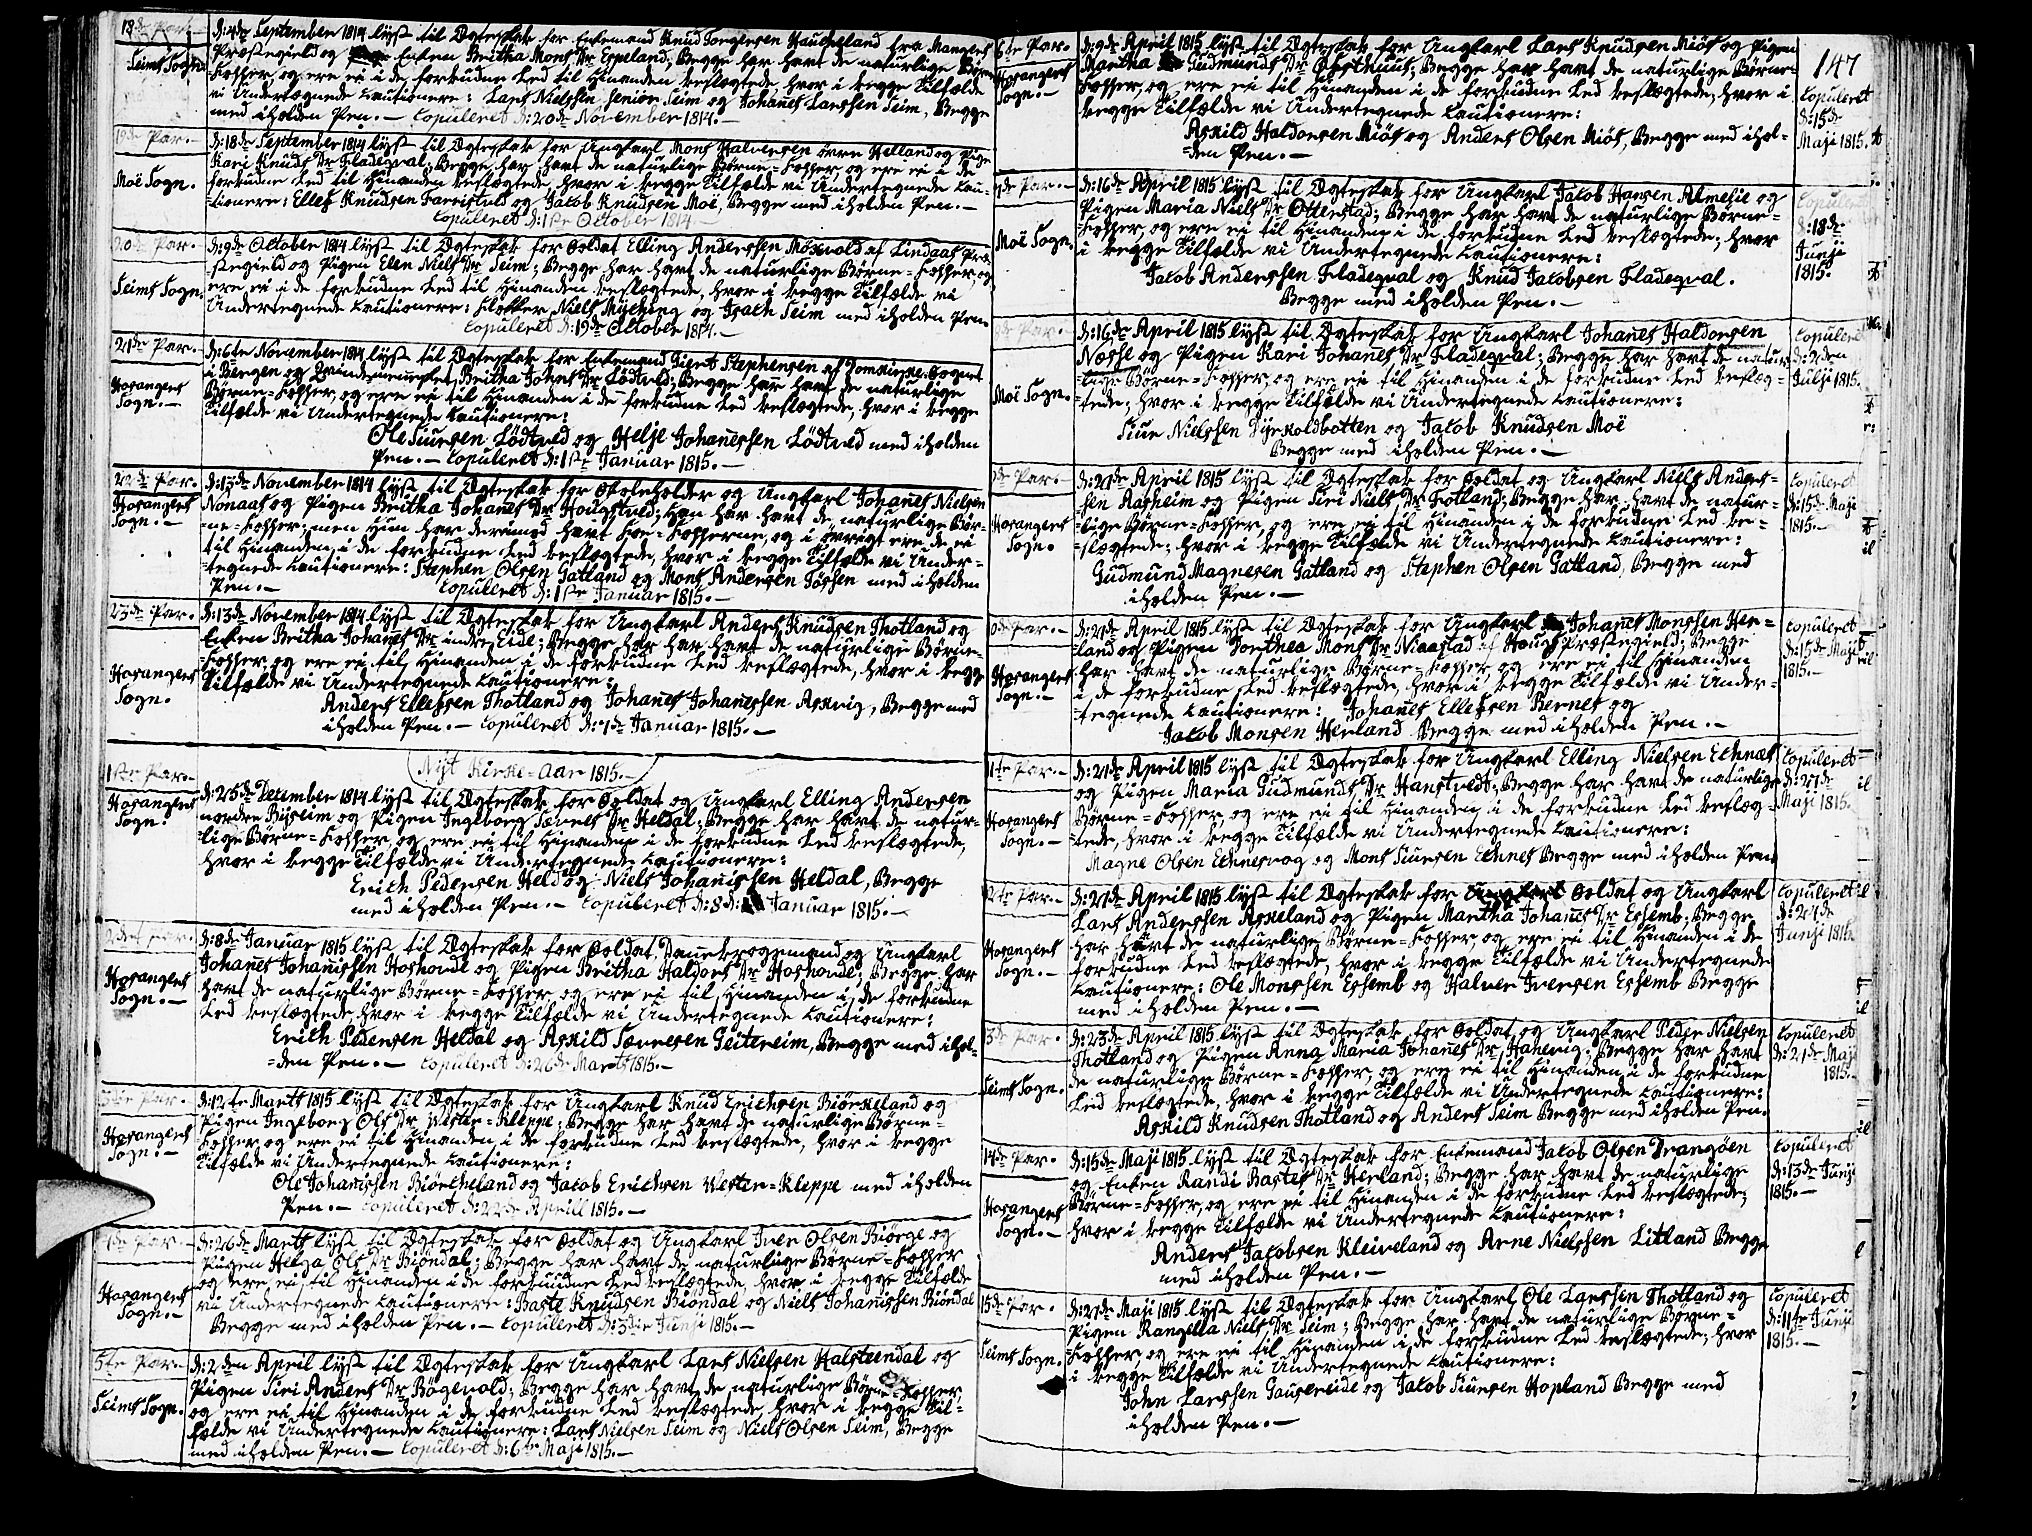 18de Par.
Seims Sogn.
d: 4de September 1814 lyst til Ægteskab for Enkemand Knud Torgersen Haucheland fra Mangers
Præstegield og Enken Britha Mons Dr Espeland; Begge har havt de naturlige Børne
Kopper, og ere ei i de forbudne Led til Hinanden beslægtede, hvor i begge Tilfælde
vi Undertegnede Cautionere: Lars Nielssen, senior Seim og Johanes Larssen Seim, Begge
med iholden Pen. — Copuleret d: 20de November 1814. —
19de Par.
Moë Sogn.
d: 18de September 1814 lyst til Ægteskab for Ungkarl Mons Halversen övre Helland og Pige
Kari Knuds Dr Fladeqval; Begge har havt de naturlige Börne-Kopper, og ere ei i de
forbudne Led til Hinanden beslægtede, hvor i begge Tilfælde vi Undertegnede Cau-
tionere: Ellef Knudsen Farestvd og Jakob Knudsen Moë, Begge med iholden Pen. —
Copuleret d: 1ste October 1814 —
20de Par.
Seims Sogn.
d: 9de October 1814 lyst til Ægteskab for Soldat Elling Anderssen Mögvold af Lindaas Præ-
stegield og Pigen Elen Niels Dr Seim; Begge har havt de naturlige Börne-Kopper, og
ere ei i de forbudne Led til Hinanden beslægtede, hvor i begge Tilfælde vi
Undertegnede Cautionere: Klokker Niels Mÿcking og Isach Seim med iholden Pen
Copuleret d: 19de October 1814. —
21de Par. —
Hosangers
Sogn. —
d: 6te November 1814 lyst til Ægteskab for Enkemand Giert Stephensen af Domkirke-Sognet
i Bergen og Qvindemennesket, Britha Johns Dr Lödtvld; Begge har havt de naturlige
Börne-Kopper, og ere ei til Hinanden i de forbudne Led beslægtede, hvor i begge
Tilfælde vi Undertegnede Cautionere:
Ole Siursen Lödtvld og Helje Johanessen Lödtvld med iholden
Pen. — Copuleret d: 1ste Januar 1815. —
22de Par. —
Hosangers
Sogn. —
d: 13de November 1814 lyst til Ægteskab for Skoleholder og Ungkarl Johanes Nielsen
Nonaas og Pigen Britha Johanes Dr Hougstvld; Han har havt de naturlige Bör-
ne-Kopper; men Hun har derimod havt Koe-Kopperne, og i övrigt ere de ei
til Hinanden, i de forbudne Led beslægtede, hvor i begge Tilfælde vi Under-
tegnede Cautionere: Stephen Olsen Gatland og Mons Andersen Tössen med iholden
Pen. — Copuleret d: 1ste Januar 1815. —
23de Par. —
Hosangers
Sogn.
d: 13de November 1814 lyst til Ægteskab for Ungkarl Anders Knudsen Thotland og
Enken Britha Johanes Dr indre Eide; Begge har havt de naturlige Börne-
Kopper, og ere ei til Hinanden i de forbudne Led beslægtede, hvor i begge
Tilfælde vi Undertegnede Cautionere:
Anders Ellefsen Thotland og Johanes Johanessen Askvig, Begge med
iholden Pen. — Copuleret d: 1de Januar 1815. —
Nÿt Kirke-Aar 1815. —
1ste Par. —
Hosangers
Sogn.
d: 25de December 1814 lyst til Ægteskab for Soldat og Ungkarl Elling Andersen
nordre Bÿseim og Pigen Ingeborg Sævels Dr Heldal; Begge har havt de natur-
lige Börne-Kopper, og ere ei til Hinanden i de forbudne Led beslægtede,
hvor i begge Tilfælde vi Undertegnede Cautionere:
Erich Pedersen Held og Niels Johanissen Heldal, Begge
med iholden Pen. — Copuleret d: 8d: Januar 1815. —
2det Par. —
Hosangers
Sogn. —
d: 8de Januar 1815 lyst til Ægteskab for Soldat, Dannebrogsmand og Ungkarl
Johanes Johanissen Hoshovde og Pigen Britha Haldors Dr Hoshovde; Begge har
havt de naturlige Börne-Kopper og ere ei til Hinanden i de forbudne
Led beslægtede, hvor i begge Tilfælde vi Undertegnede Cautionere:
Erich Pedersen Heldal og Askild Sævresen Geitereim, Begge med ihol-
den Pen. — Copuleret d: 26de Marts 1815. —
3die Par. —
Hosangers
Sogn. —
d: 12te Marts 1815 lyst til Ægteskab for Ungkarl Knud Erichsen Biörkeland og
Pigen Ingeborg Ols Dr Vester-Kleppe; Begge har havt de naturlige Börne-
Kopper, og ere ei til Hinanden i de forbudne Led beslægtede, hvor i begge
Tilfælde vi Undertegnede Cautionere:
Ole Johanissen Biörcheland og Jacob Erichsen Vester-Kleppe med iholden
Pen. — Copuleret d: 22de Aprill 1815. —
4de Par. —
Hosangers
Sogn. —
d: 26de Marts lyst til Ægteskab for Soldat og Ungkarl Iver Olsen Biörge og
Pigen Helga Ols Dr Biöndal; Begge har havt de naturlige Börne-Kopper
og ere ei til Hinanden i de forbudne Led beslægtede, hvor i begge Tilfælde
vi Undertegnede Cautionere: Baste Knudsen Biöndal og Niels Johanissen Biöndal
Begge med iholden Pen. — Copuleret d: 3die Junji 1815. —
5te Par. —
Seims Sogn.
d: 2den April lyst til Ægteskab for Ungkarl Lars Nielsen Halstendal og
Pigen Siri Anders Dr Bögevold; Begge har havt de naturlige Börne-Kopper
og ere ei til Hinanden i de forbudne Led beslægtede, hvor i begge Til-
fælde vi Undertegnede Cautionere: Lars Nielsen Seim og Niels Olsen Seim, Begge
med iholden Pen. — Copuleret d: 6te Maji 1815. —
147
6te Par. —
Hosangers
Sogn. —
d: 9de April 1815 lyst til Ægteskab for Ungkarl Lars Knudsen Miös og Pigen
Martha Gudmunds Dr; Begge har havt de naturlige Börne-
Kopper, og ere ei til Hinanden i de forbudne Led beslægtede, hvor i
begge Tilfælde vi Undertegnede Cautionere:
Askild Haldorsen Miös og Anders Olsen Miös, Begge med ihol-
den Pen. —
Copuleret
d: 15de
Maji 1815.
7de Par. —
Moë Sogn.
d: 16de April 1815 lyst til Ægteskab for Ungkarl Jacob Hansen Almelie og
Pigen Maria Niels Dr Otterstad; Begge har havt de naturlige Börne-
Kopper, og ere ei til Hinanden i de forbudne Led beslægtede; hvor
i begge Tilfælde vi Undertegnede Cautionere:
Jacob Anderssen Fladeqval og Knud Jacobsen Fladeqval.
Begge med iholden Pen. —
Copuleret
d: 18de
Junji
1815.
8de Par.
Moë Sogn.
d: 16de April 1815 lyst til Ægteskab for Ungkarl Johanes Haldorsen
Næsse og Pigen Kari Johanes Dr Fladeqval; Begge har havt de natur-
lige Börne-Kopper, og ere ei til Hinanden i de forbudne Led beslæg-
tede; hvor i begge Tilfælde vi Undertegnede Cautionere:
Siur Nielssen Dÿrkolbotten og Jacob Knudsen Moë
Begge med iholden Pen. —
Copuleret
d: 2den
Julji 1815.
9de Par. —
Hosangers
Sogn.
d: 21de April 1815 lyst til Ægteskab for Soldat og Ungkarl Niels Anders-
sen Rasheim og Pigen Siri Niels Dr Fotland; Begge har havt de natur-
lige Börne-Kopper, og ere ei til Hinanden i de forbudne Led be-
slægtede; hvor i begge Tilfælde vi Undertegnede Cautionere:
Gudmund Magnesen Gatland og Stephen Olsen Gatland, Begge med
iholden Pen. —
Copuleret
d: 15de Maji
1815. —
10de Par. —
Hosangers
Sogn. —
d: 21de April 1815 lyst til Ægteskab for Ungkarl Johanes Monssen Her-
land og Pigen Dorthea Mons Dr Niaastad af Hougs Præstegield; Begge
har havt de naturlige Börne-Kopper, og ere ei til Hinanden
i de forbudne Led beslægtede, hvor i begge Tilfælde vi Under-
tegnede Cautionere: Johanes Ellefsen Bernes og
Jacob Monsen Herland Begge med iholden Pen. —
Copuleret
d: 15de Maji
1815. —
11te Par. —
Hosangers
Sogn. —
d: 21de April 1815 lyst til Ægteskab for Ungkarl Elling Nielsen Echnæs
og Pigen Maria Gudmunds Dr Hanstvedt; Begge har havt de naturlige
Börne-Kopper, og ere ei til Hinanden i de forbudne Led beslæg-
tede, hvor i begge Tilfælde vi Undertegnede Cautionere:
Magne Olsen Echnesvog og Mons Siursen Echnes Begge med iholden Pen
Copuleret
d: 27de
Maji 1815.
12te Par. —
Hosangers
Sogn. —
d: 21de April 1815 lyst til Ægteskab for Soldat og Ungkarl
Lars Anderssen Askeland og Pigen Martha Johanes Dr Essemb; Begge
har havt de naturlige Börne-Kopper, og ere ei til Hinanden i de
forbudne Led beslægtede, hvor i begge Tilfælde vi Undertegnede
Cautionere: Ole Monssen Essemb og Halver Iversen Essemb Begge
med iholden Pen. —
Copuleret
d: 24de
Junji 1815.
13de Par. —
Seims Sogn.
d: 23de April 1815 lyst til Ægteskab for Soldat og Ungkarl Peder Nielsen
Thotland og Pigen Anna Maria Johanes Dr Hanevig; Begge har havt
de naturlige Börne-Kopper, og ere ei til Hinanden i de forbudne
Led beslægtede, hvor i begge Tilfælde vi Undertegnede Cautionere:
Askild Knudsen Thotland og Anders Seim Begge med iholden Pen.
Copuleret
d: 21de Maji
1815. —
14de Par. —
Hosangers
Sogn. —
d: 15de Maji 1815 lyst til Ægteskab for Enkemand Jacob Olsen Drangöen
og Enken Randi Bastes Dr Herland; Begge har havt de naturlige
Börne-Kopper, og ere ei til Hinanden i de forbudne Led beslægtede;
hvor i begge Tilfælde vi Undertegnede Cautionere:
Anders Jacobsen Kleiveland og Arne Nielssen Litland Begge
med iholden Pen. —
Copuleret
d: 13de Junji
1815. —
15de Par. —
Seims Sogn.
d: 21de Maji 1815 lyst til Ægteskab for Ungkarl Ole Larssen Thotland og
Pigen Rangella Niels Dr Seim; Begge har havt de naturlige Börne-
Kopper, og ere ei til Hinanden i de forbudne Led beslægtede, hvor
i begge Tilfælde vi Undertegnede Cautionere:
John Larssen Gausereide og Jacob Siursen Hopland Begge med
iholden Pen. —
Copuleret
d: 11te Junji
1815. —